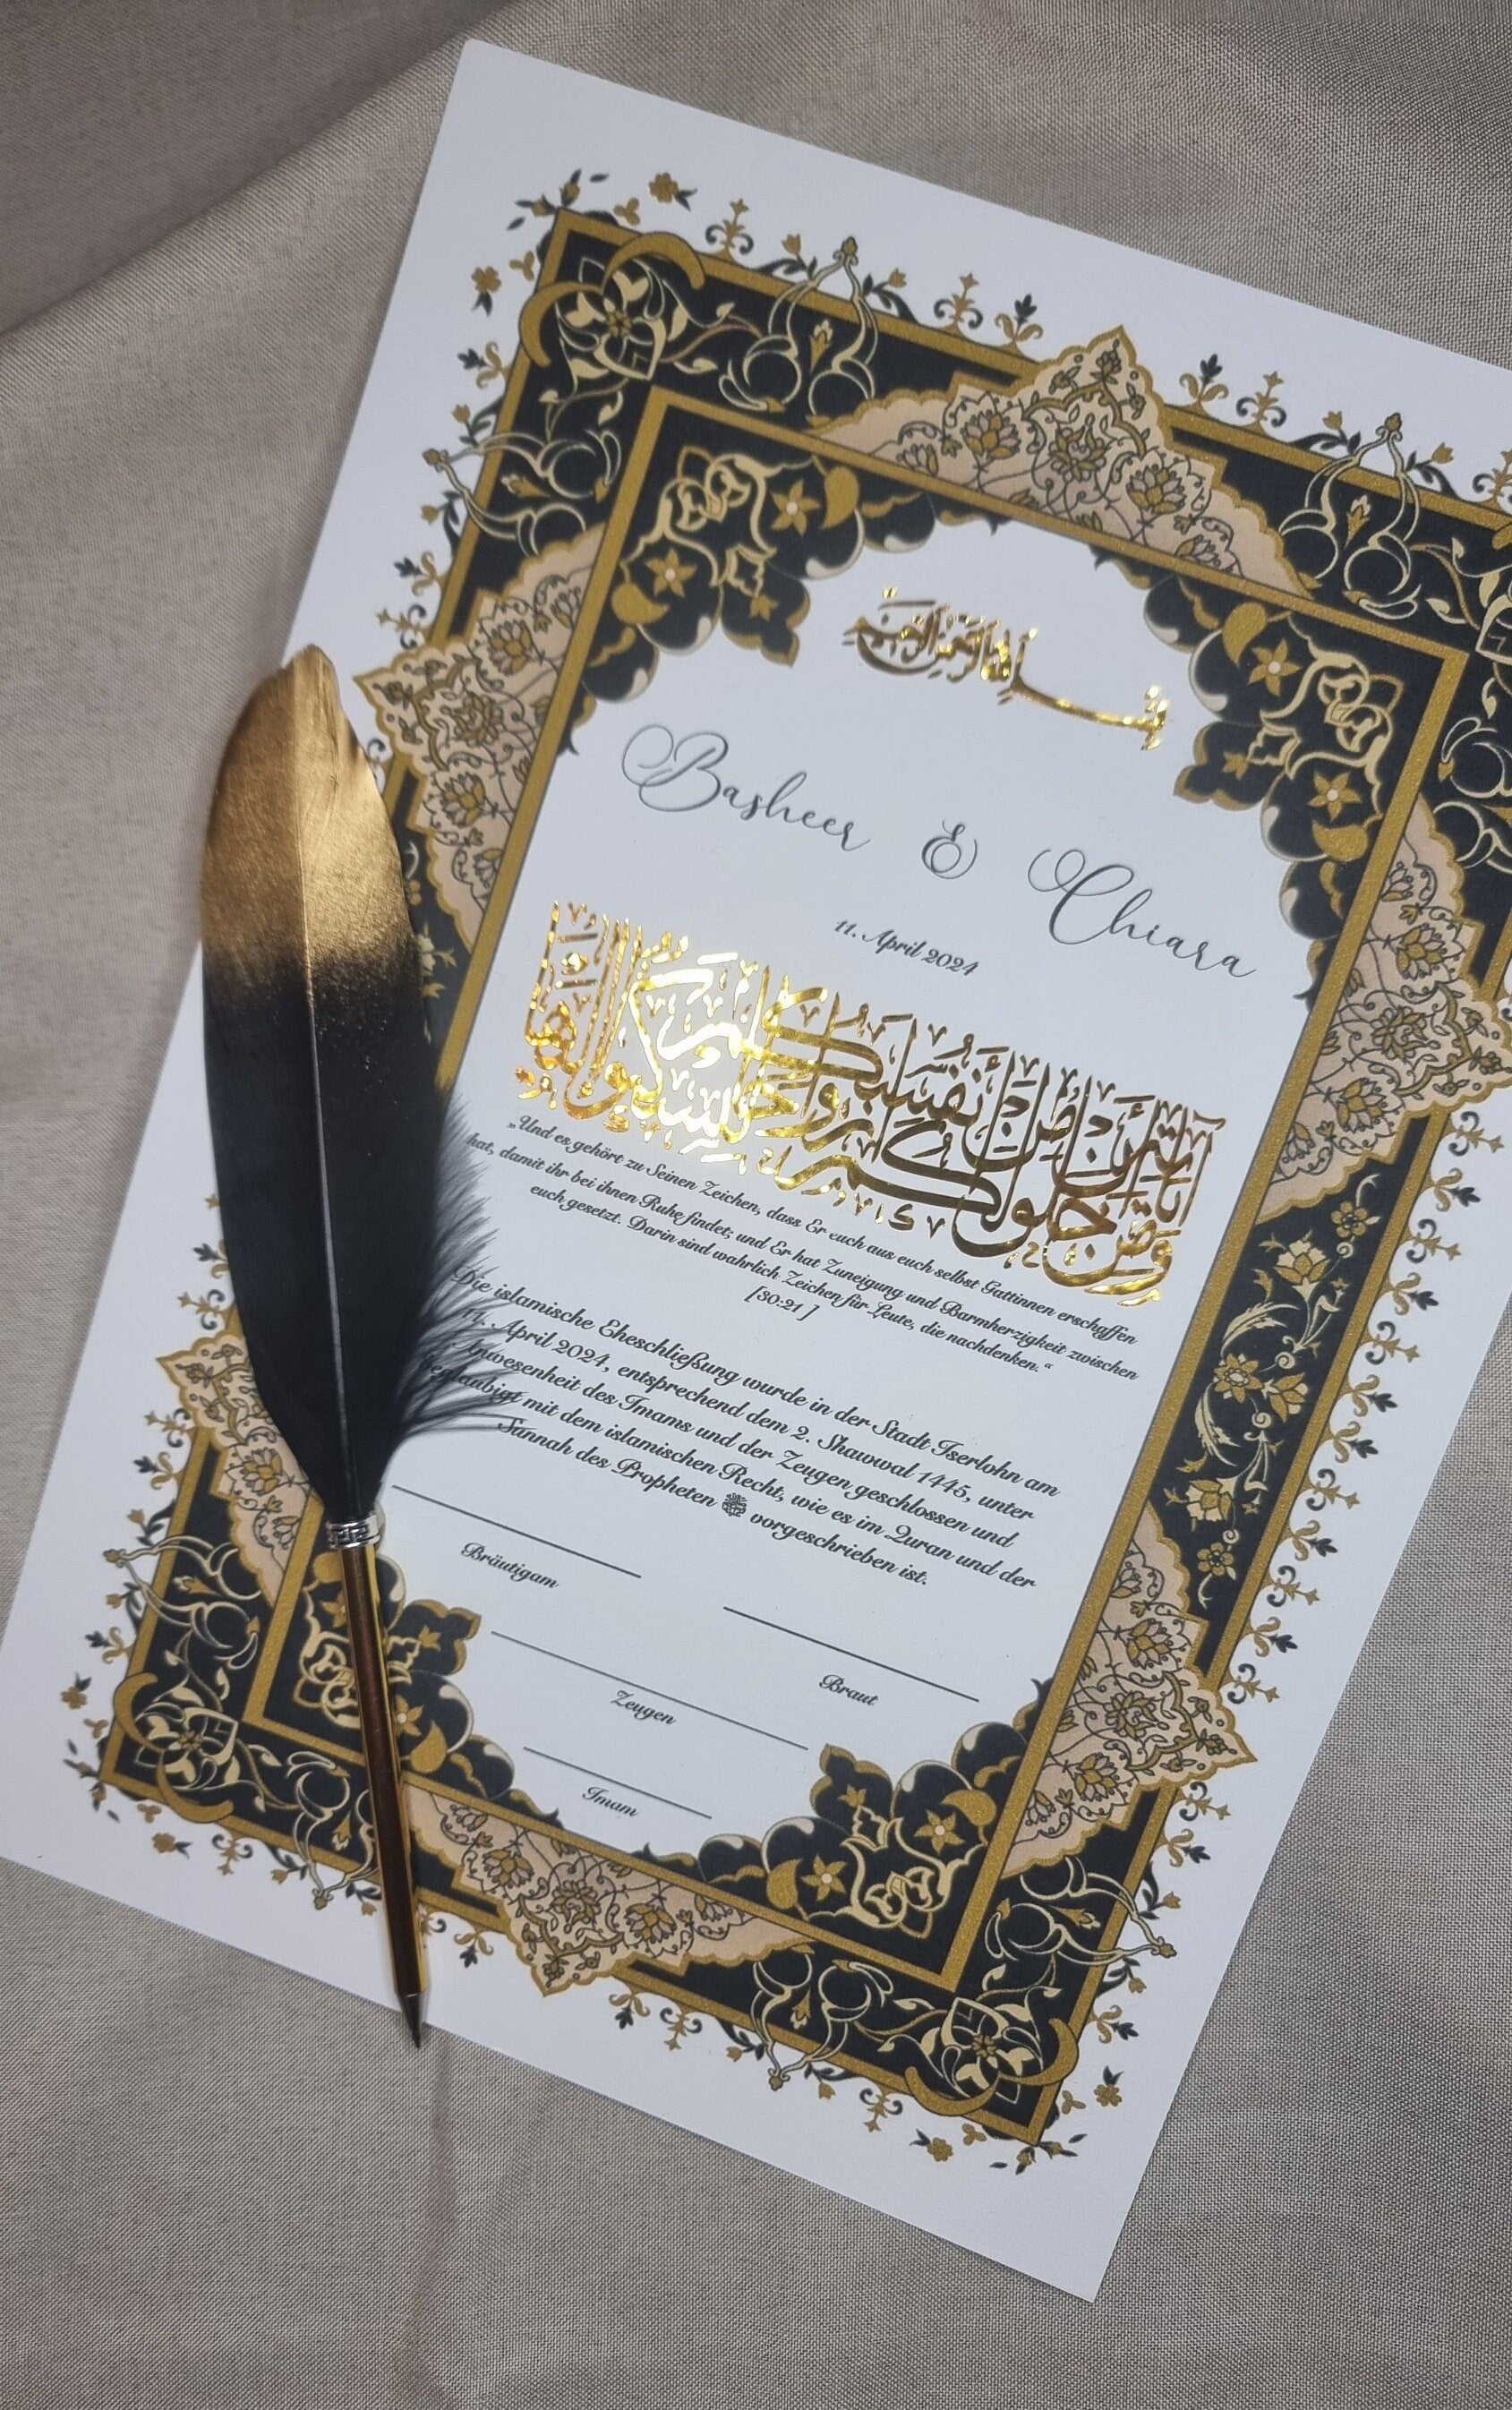 بسم الله الرحمن الرحيم
Basheer & Chiara
11. April 2024
ومن آياته أن خلق لكم من أنفسكم أزواجا لتسكنوا إليها
„Und es gehört zu Seinen Zeichen, dass Er euch aus euch selbst Gattinnen erschaffen
hat, damit ihr bei ihnen Ruhe findet; und Er hat Zuneigung und Barmherzigkeit zwischen
euch gesetzt. Darin sind wahrlich Zeichen für Leute, die nachdenken.“
[30:21]
Die islamische Eheschließung wurde in der Stadt Iserlohn am
11. April 2024, entsprechend dem 2. Shawwal 1445, unter
Anwesenheit des Imams und der Zeugen geschlossen und
beglaubigt mit dem islamischen Recht, wie es im Quran und der
Sunnah des Propheten ﷺ vorgeschrieben ist.
Bräutigam
Braut
Zeugen
Imam